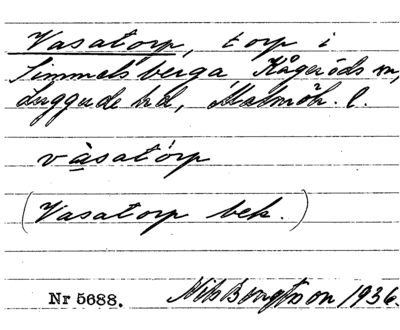 Vasatorp, torp i
Simmelsberga, Kågeröds sn,
Luggude hd, Malmöh. l.
vàsatórp
(Vasatorp bek.)
Nr 5688. Nils Bengtsson 1936.